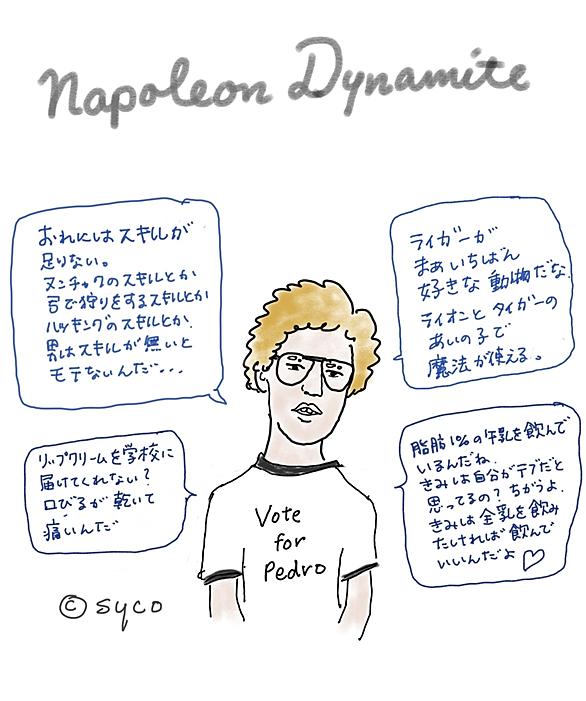 Napoleon Dynamite
おれにはスキルが
足りない。
ヌンチャクのスキルとか
弓で狩りをするスキルとか
ハッキングのスキルとか。
男はスキルが無いと
モテないんだ...
ライガーが
まあいちばん
好きな動物だな。
ライオンとタイガーの
あいの子で
魔法が使える。
リップクリームを学校に
届けてくれない?
口びるが乾いて
痛いんだ
脂肪1%の牛乳を飲んで
いるんだね。
きみは自分がデブだと
思ってるの?ちがうよ。
きみは全乳を飲み
たければ飲んで
いいんだよ♡
Vote
for
Pedro
© syco